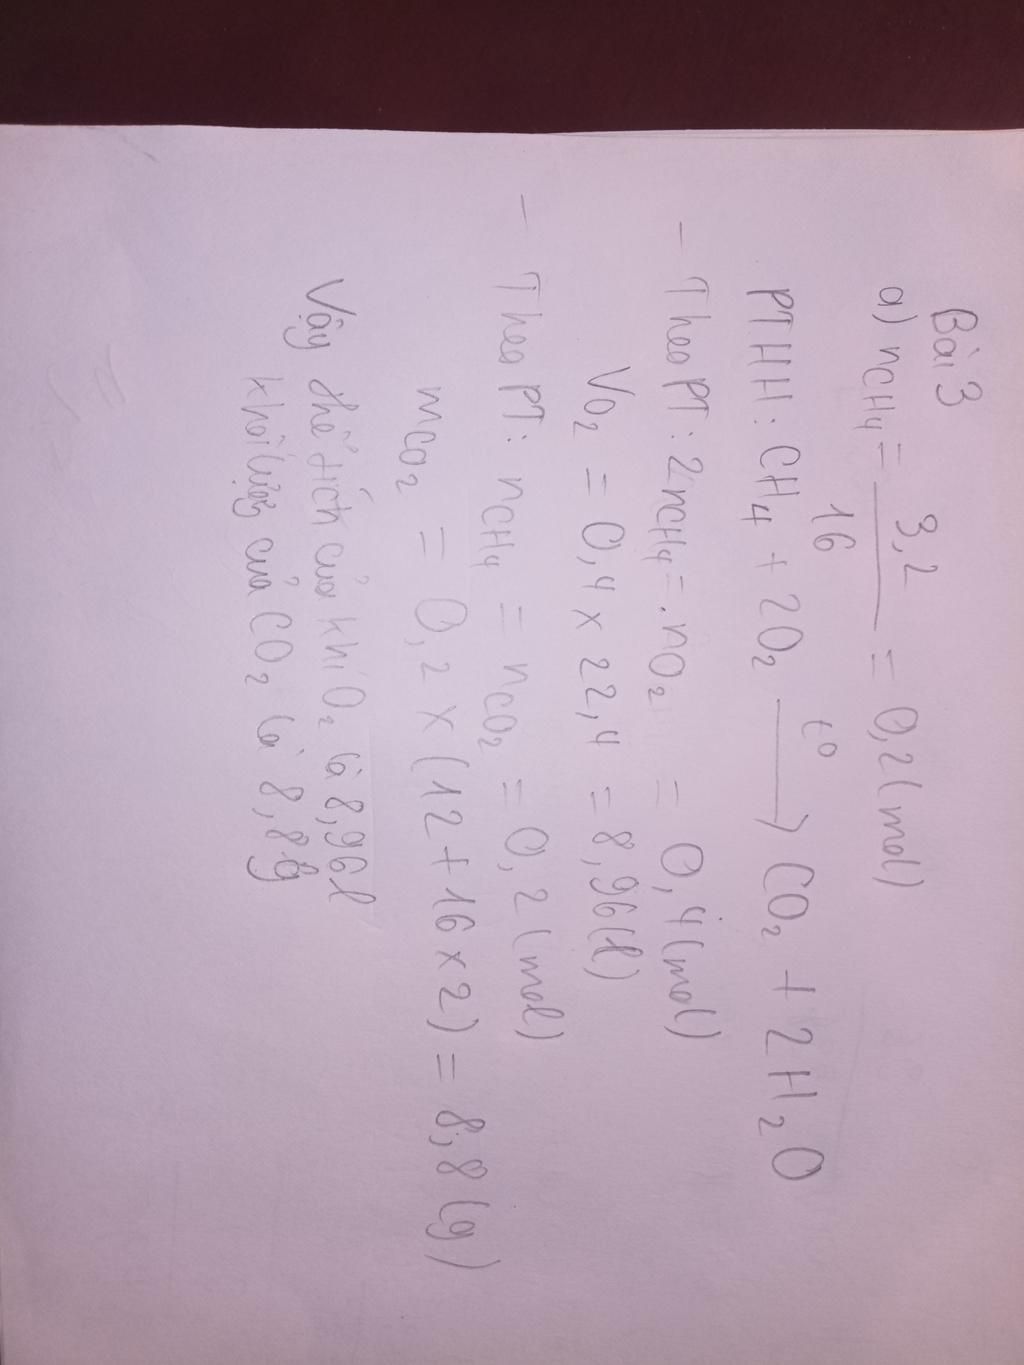 Bài 3
a) nCH₄ = 3,2 / 16 = 0,2 (mol)
PTHH: CH₄ + 2O₂ —t⁰→ CO₂ + 2H₂O
- Theo PT: 2nCH₄ = nO₂ = 0,4 (mol)
VO₂ = 0,4 x 22,4 = 8,96 (l)
- Theo PT: nCH₄ = nCO₂ = 0,2 (mol)
mCO₂ = 0,2 x (12 + 16 x 2) = 8,8 (g)
Vậy thể tích của khí O₂ là 8,96l
khối lượng của CO₂ là 8,8g